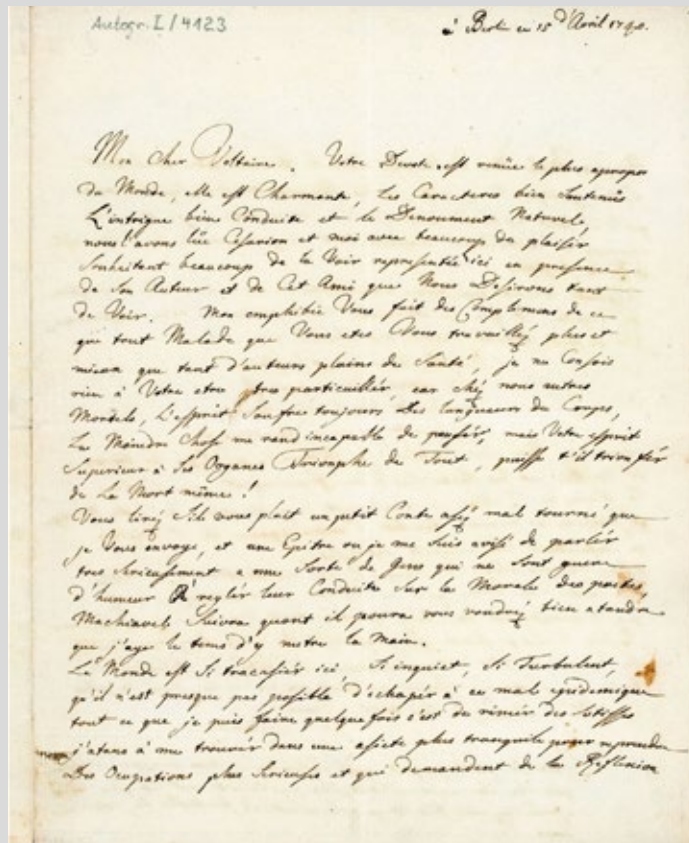 Autogr. I/4123
à Berlin ce 15 d'Avril 1740.
Mon cher Voltaire. Votre Devote est venüe le plus apropos
du Monde, elle est Charmante, les Caracteres bien soutenüs
L'intrigue bien Conduite et le Denoument Naturel,
nous l'avons lüe Cesarion et moi avec beaucoup de plaisir
souhaitant beaucoup de la Voir representée ici en presence
de son Auteur et de Cet Ami que Nous Desirons tant
de Voir. Mon amphibie Vous fait des Complemens de ce
que tout Malade que Vous etes Vous travailléz plus et
mieux que tant d'auteurs plains de Santé, je ne Consois
rien à Votre etre tres particuillér, car chéz nous autres
Mortels, L'esprit Soufre toujours des langueurs du Corps,
La Moindre Chose me rend incapable de pensér, mais Votre esprit
Superieur à Ses Organes Triomphe de Tout, puisse t'il triomfér
de La Mort même!
Vous liréz s'il vous plait un petit Conte aséz mal tourné que
je Vous envoye, et une Epitre ou je me suis avisé de parlér
tres serieusement a une Sorte de Gens qui ne sont guere
d'humeur à reglér leur Conduite sur la Morale des poetes,
Machiavel Suivra quant il poura vous voudréz bien atandre
que j'aye le tems d'y metre la Main.
Le Monde est Si tracasiér ici, Si inquiet, Si Turbulent,
qu'il n'est presque pas posible d'echapér à ce mal epidemique
tout ce que je puis faire quelque fois c'est de rimér des sotisses
j'atans à me trouvér dans une asiete plus tranquile pour reprendre
mes Des Ocupations plus Serieuses et qui demandent de la Reflexion